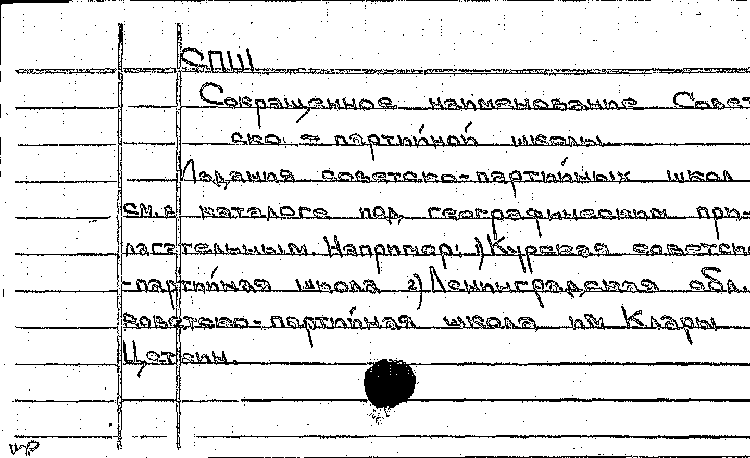 СПШ
Сокращенное наименование Совет
ско-партийной школы.
Издания советско-партийных школ
см. в каталоге под географическим при-
лагательным. Например: 1) Курская советско
-партийная школа 2) Ленинградская обл.
советско-партийная школа им Клары
Цеткин.